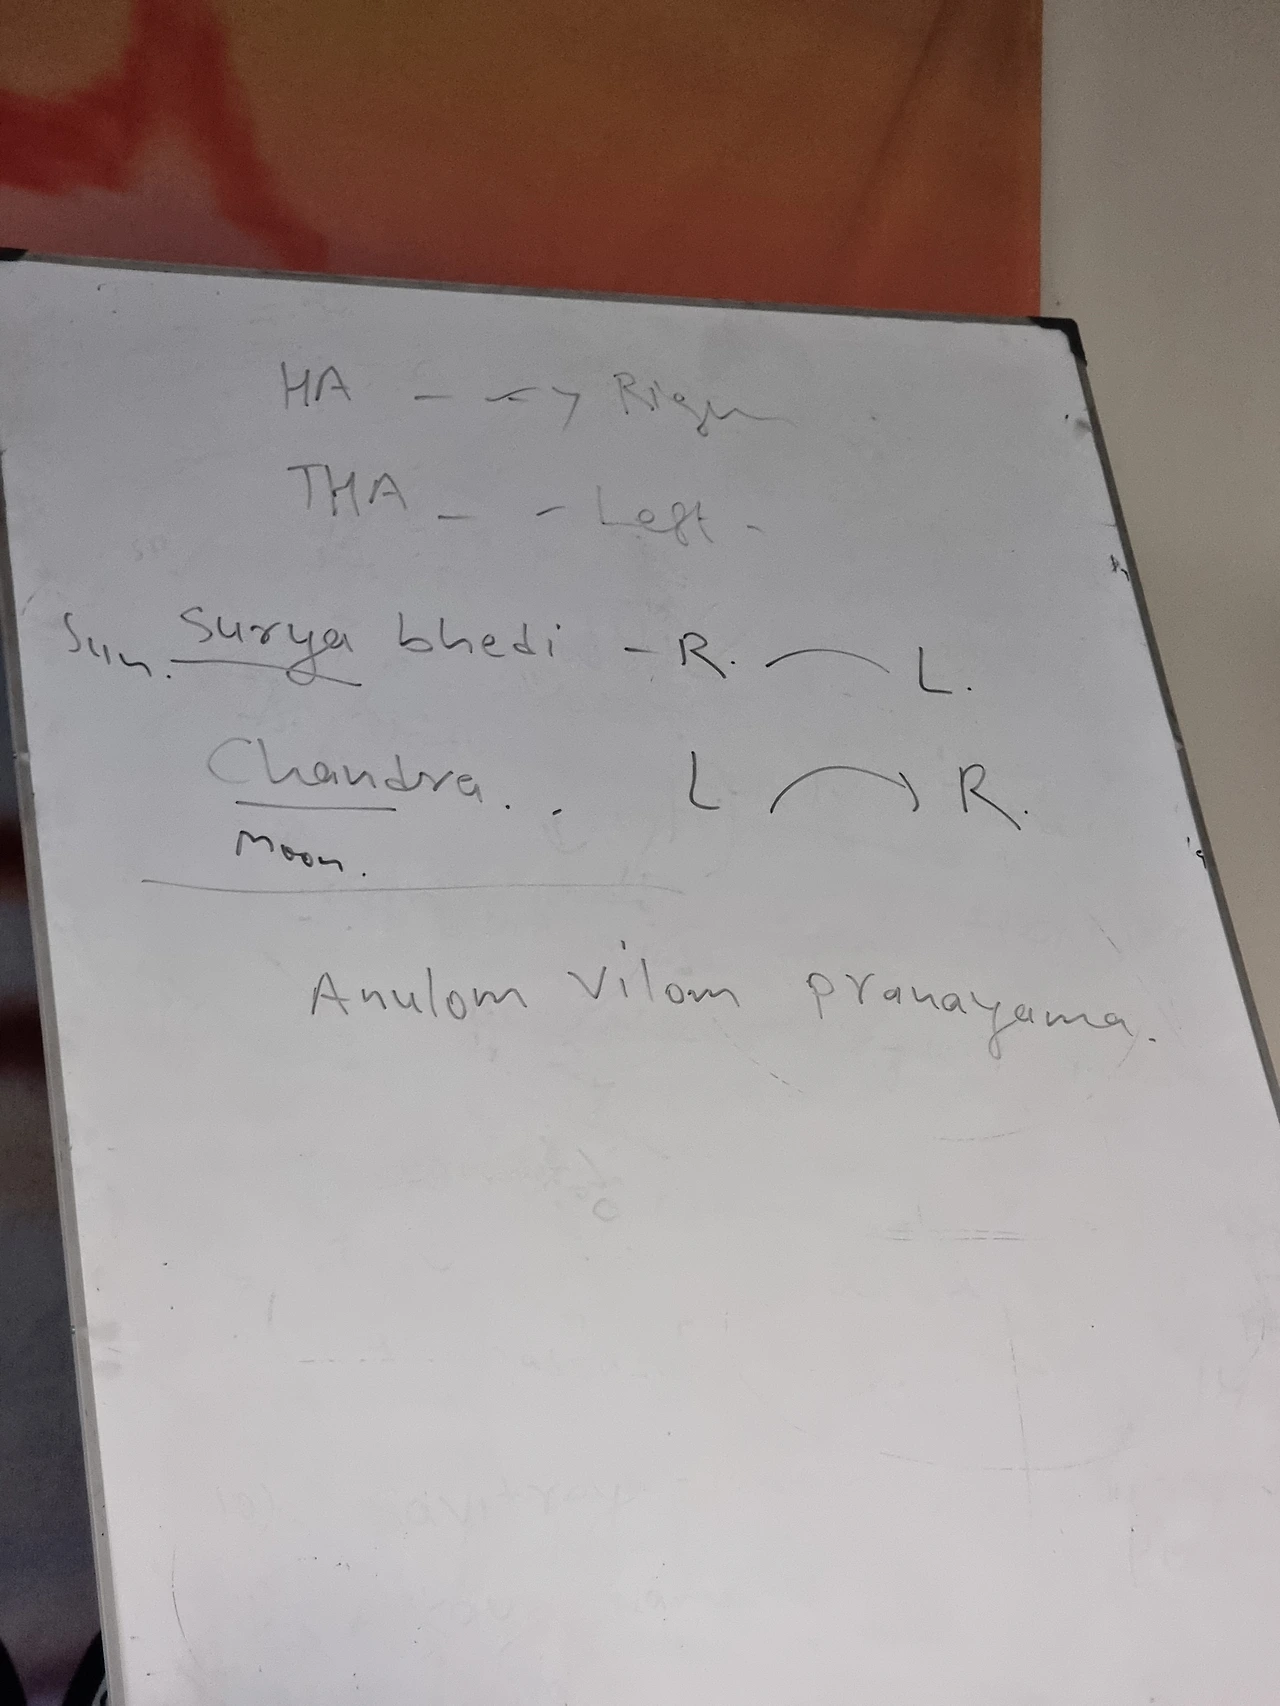 HA - - -> Right
THA - - Left -
Sun. Surya bhedi - R. L.
Chandra. . L → R.
Moon.
Anulom Vilom pranayama.